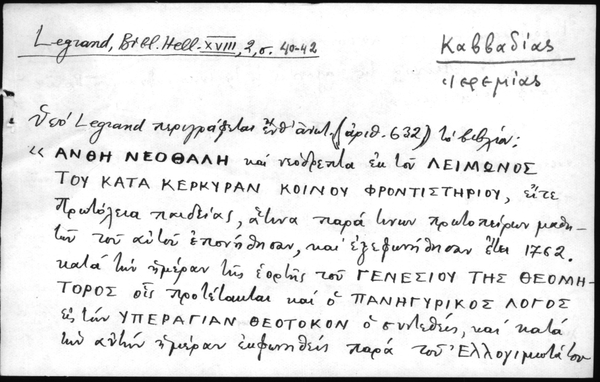 Legrand, Bibl. Hell. XVIII, 2, σ. 40-42
Καββαδίας
Ἱερεμίας
Ὑπὸ Legrand περιγράφεται ἔνθ' ἀνωτ. (ἀριθ. 632) τὸ βιβλίον:
« ΑΝΘΗ ΝΕΟΘΑΛΗ καὶ νεόδρεπτα ἐκ τοῦ ΛΕΙΜΩΝΟΣ
ΤΟΥ ΚΑΤΑ ΚΕΡΚΥΡΑΝ ΚΟΙΝΟΥ ΦΡΟΝΤΙΣΤΗΡΙΟΥ, εἴτε
Πρωτόλεια παιδείας, ἅτινα παρά τινων πρωτοπείρων μαθη-
τῶν τοῦ αὐτοῦ ἐπονήθησαν, καὶ ἐξεφωνήθησαν ἔτει 1762.
κατὰ τὴν ἡμέραν τῆς ἑορτῆς τοῦ ΓΕΝΕΣΙΟΥ ΤΗΣ ΘΕΟΜΗ-
ΤΟΡΟΣ οἷς προτέτακται καὶ ὁ ΠΑΝΗΓΥΡΙΚΟΣ ΛΟΓΟΣ
εἰς τὴν ΥΠΕΡΑΓΙΑΝ ΘΕΟΤΟΚΟΝ ὁ συντεθείς, καὶ κατὰ
τὴν αὐτὴν ἡμέραν ἐκφωνηθεὶς παρὰ τοῦ Ἐλλογιμωτάτου